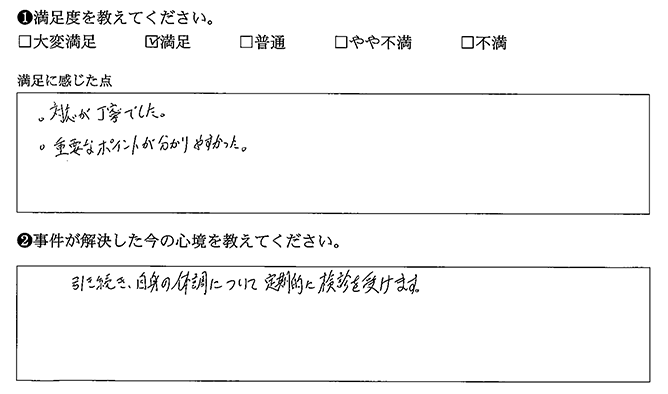 ❶満足度を教えてください。
□大変満足 ☑満足 □普通 □やや不満 □不満
満足に感じた点
。対応が丁寧でした。
。重要なポイントが分かりやすかった。
❷事件が解決した今の心境を教えてください。
引き続き、自身の体調について定期的に検診を受けます。